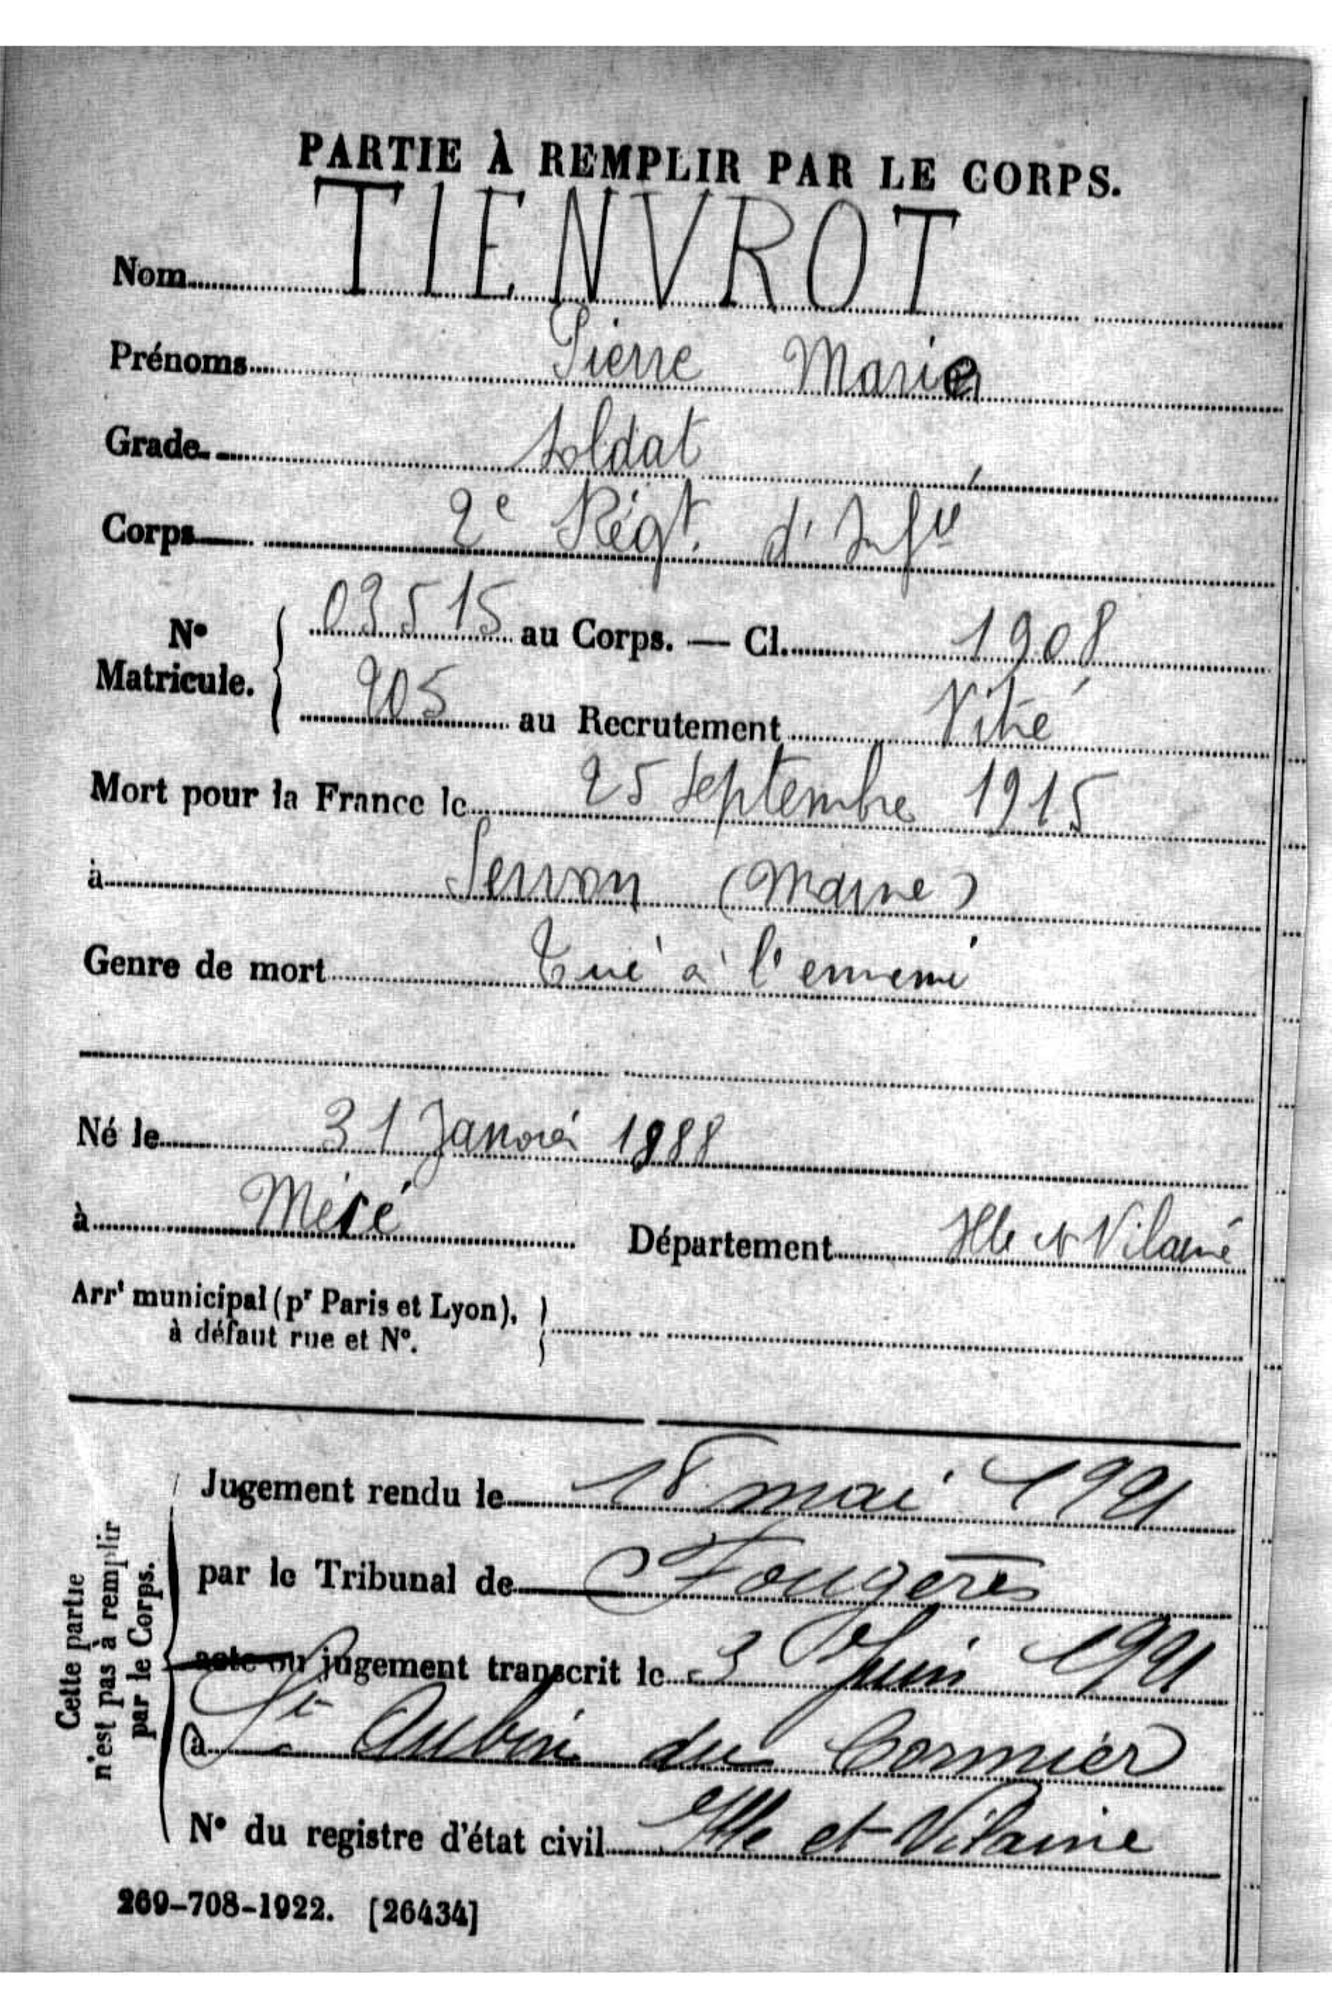 PARTIE À REMPLIR PAR LE CORPS.
Nom TIENVROT
Prénoms Pierre Marie
Grade Soldat
Corps 2e Régt. d'Infie
No Matricule. { 03515 au Corps. — Cl. 1908
205 au Recrutement Vitré
Mort pour la France le 25 septembre 1915
à Servon (Marne)
Genre de mort Tué à l'ennemi
Né le 31 Janvier 1888
à Département Ille et Vilaine
Arrt municipal (pr Paris et Lyon), }
à défaut rue et No.
Cette partie
n'est pas à remplir
par le Corps.
Jugement rendu le 18 mai 1921
par le Tribunal de Fougères
acte ou jugement transcrit le 3 Juin 1921
à St Aubin du Cormier
No du registre d'état civil Ille et Vilaine
269-708-1922. [26434]